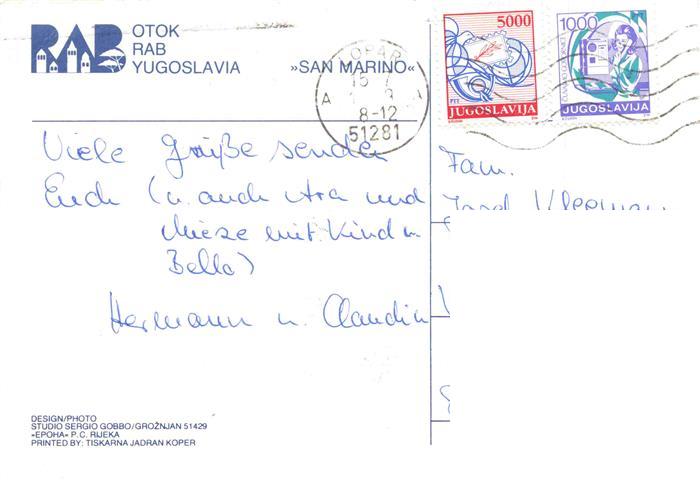 RAB
OTOK
RAB
YUGOSLAVIA
»SAN MARINO«
LOPAR
15 7
A
8-12
51281
5000
PTT
JUGOSLAVIJA
1000
JUGOSLAVIJA
Viele Grüße senden
Euch (u. auch Ara und
Mieze mit Kind u.
Bella)
Hermann u. Claudia
Fam.
DESIGN/PHOTO
STUDIO SERGIO GOBBO/GROŽNJAN 51429
»EPOHA« P.C. RIJEKA
PRINTED BY: TISKARNA JADRAN KOPER